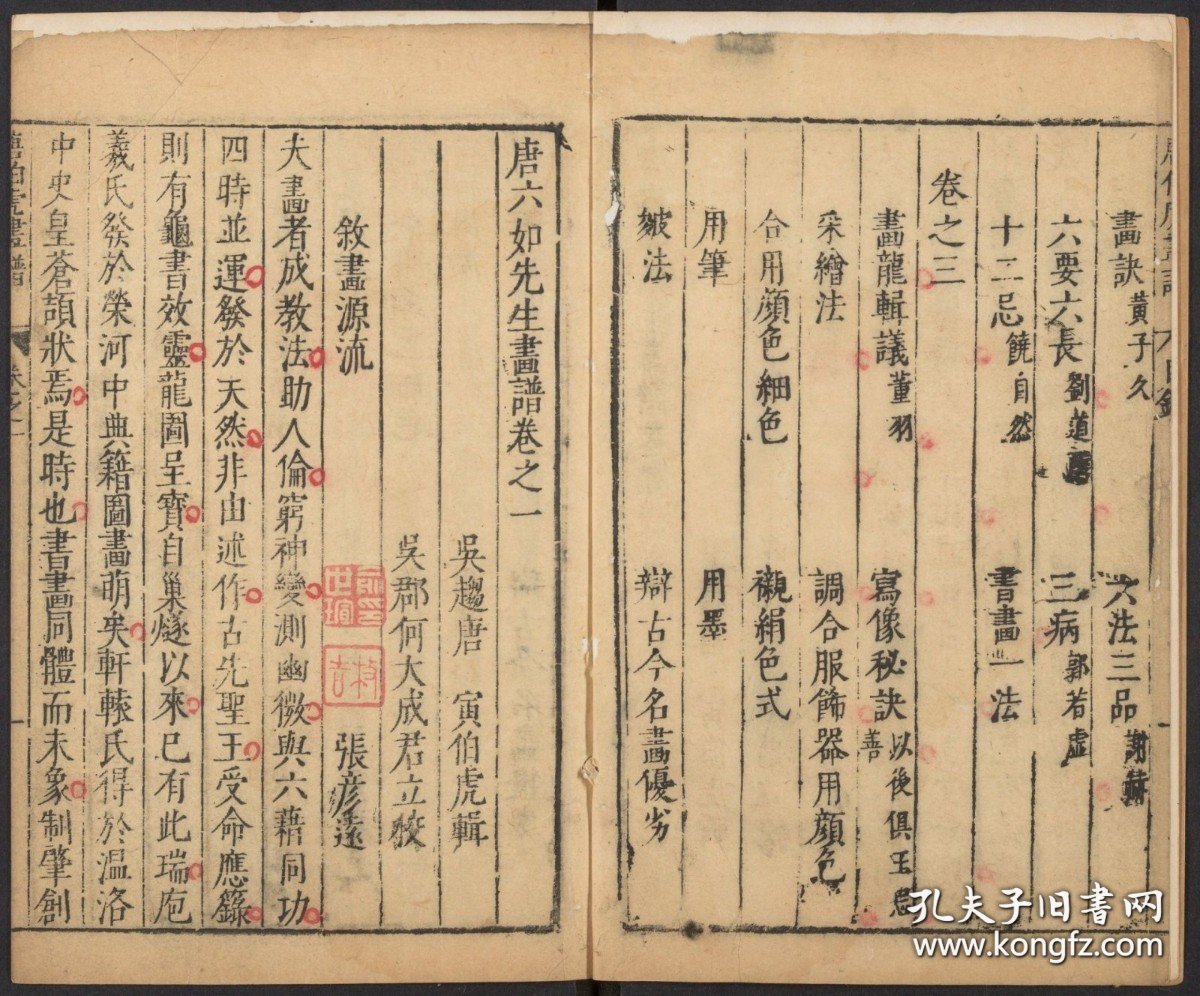 畫訣黃子久 六法三品謝赫
六要六長劉道醇 三病郭若虛
十二忌饒自然 書畫一法
卷之三
畫龍輯議董羽 寫像秘訣以後俱王思善
采繪法 調合服飾器用顏色
合用顏色細色 襯絹色式
用筆 用墨
皴法 辯古今名畫優劣
唐六如先生畫譜卷之一
吳趨唐 寅伯虎輯
吳郡何大成君立校
敘畫源流 張彦遠
夫畫者成教法助人倫窮神變測幽微與六藉同功
四時並運發於天然非由述作古先聖王受命應籙
則有龜書效靈龍圖呈寶自巢燧以來已有此瑞庖
羲氏發於榮河中典籍圖畫萌矣軒轅氏得於溫洛
中史皇蒼頡狀焉是時也書畫同體而未象制肇創
唐伯虎畫譜 卷之一 一
孔夫子旧书网
www.kongfz.com